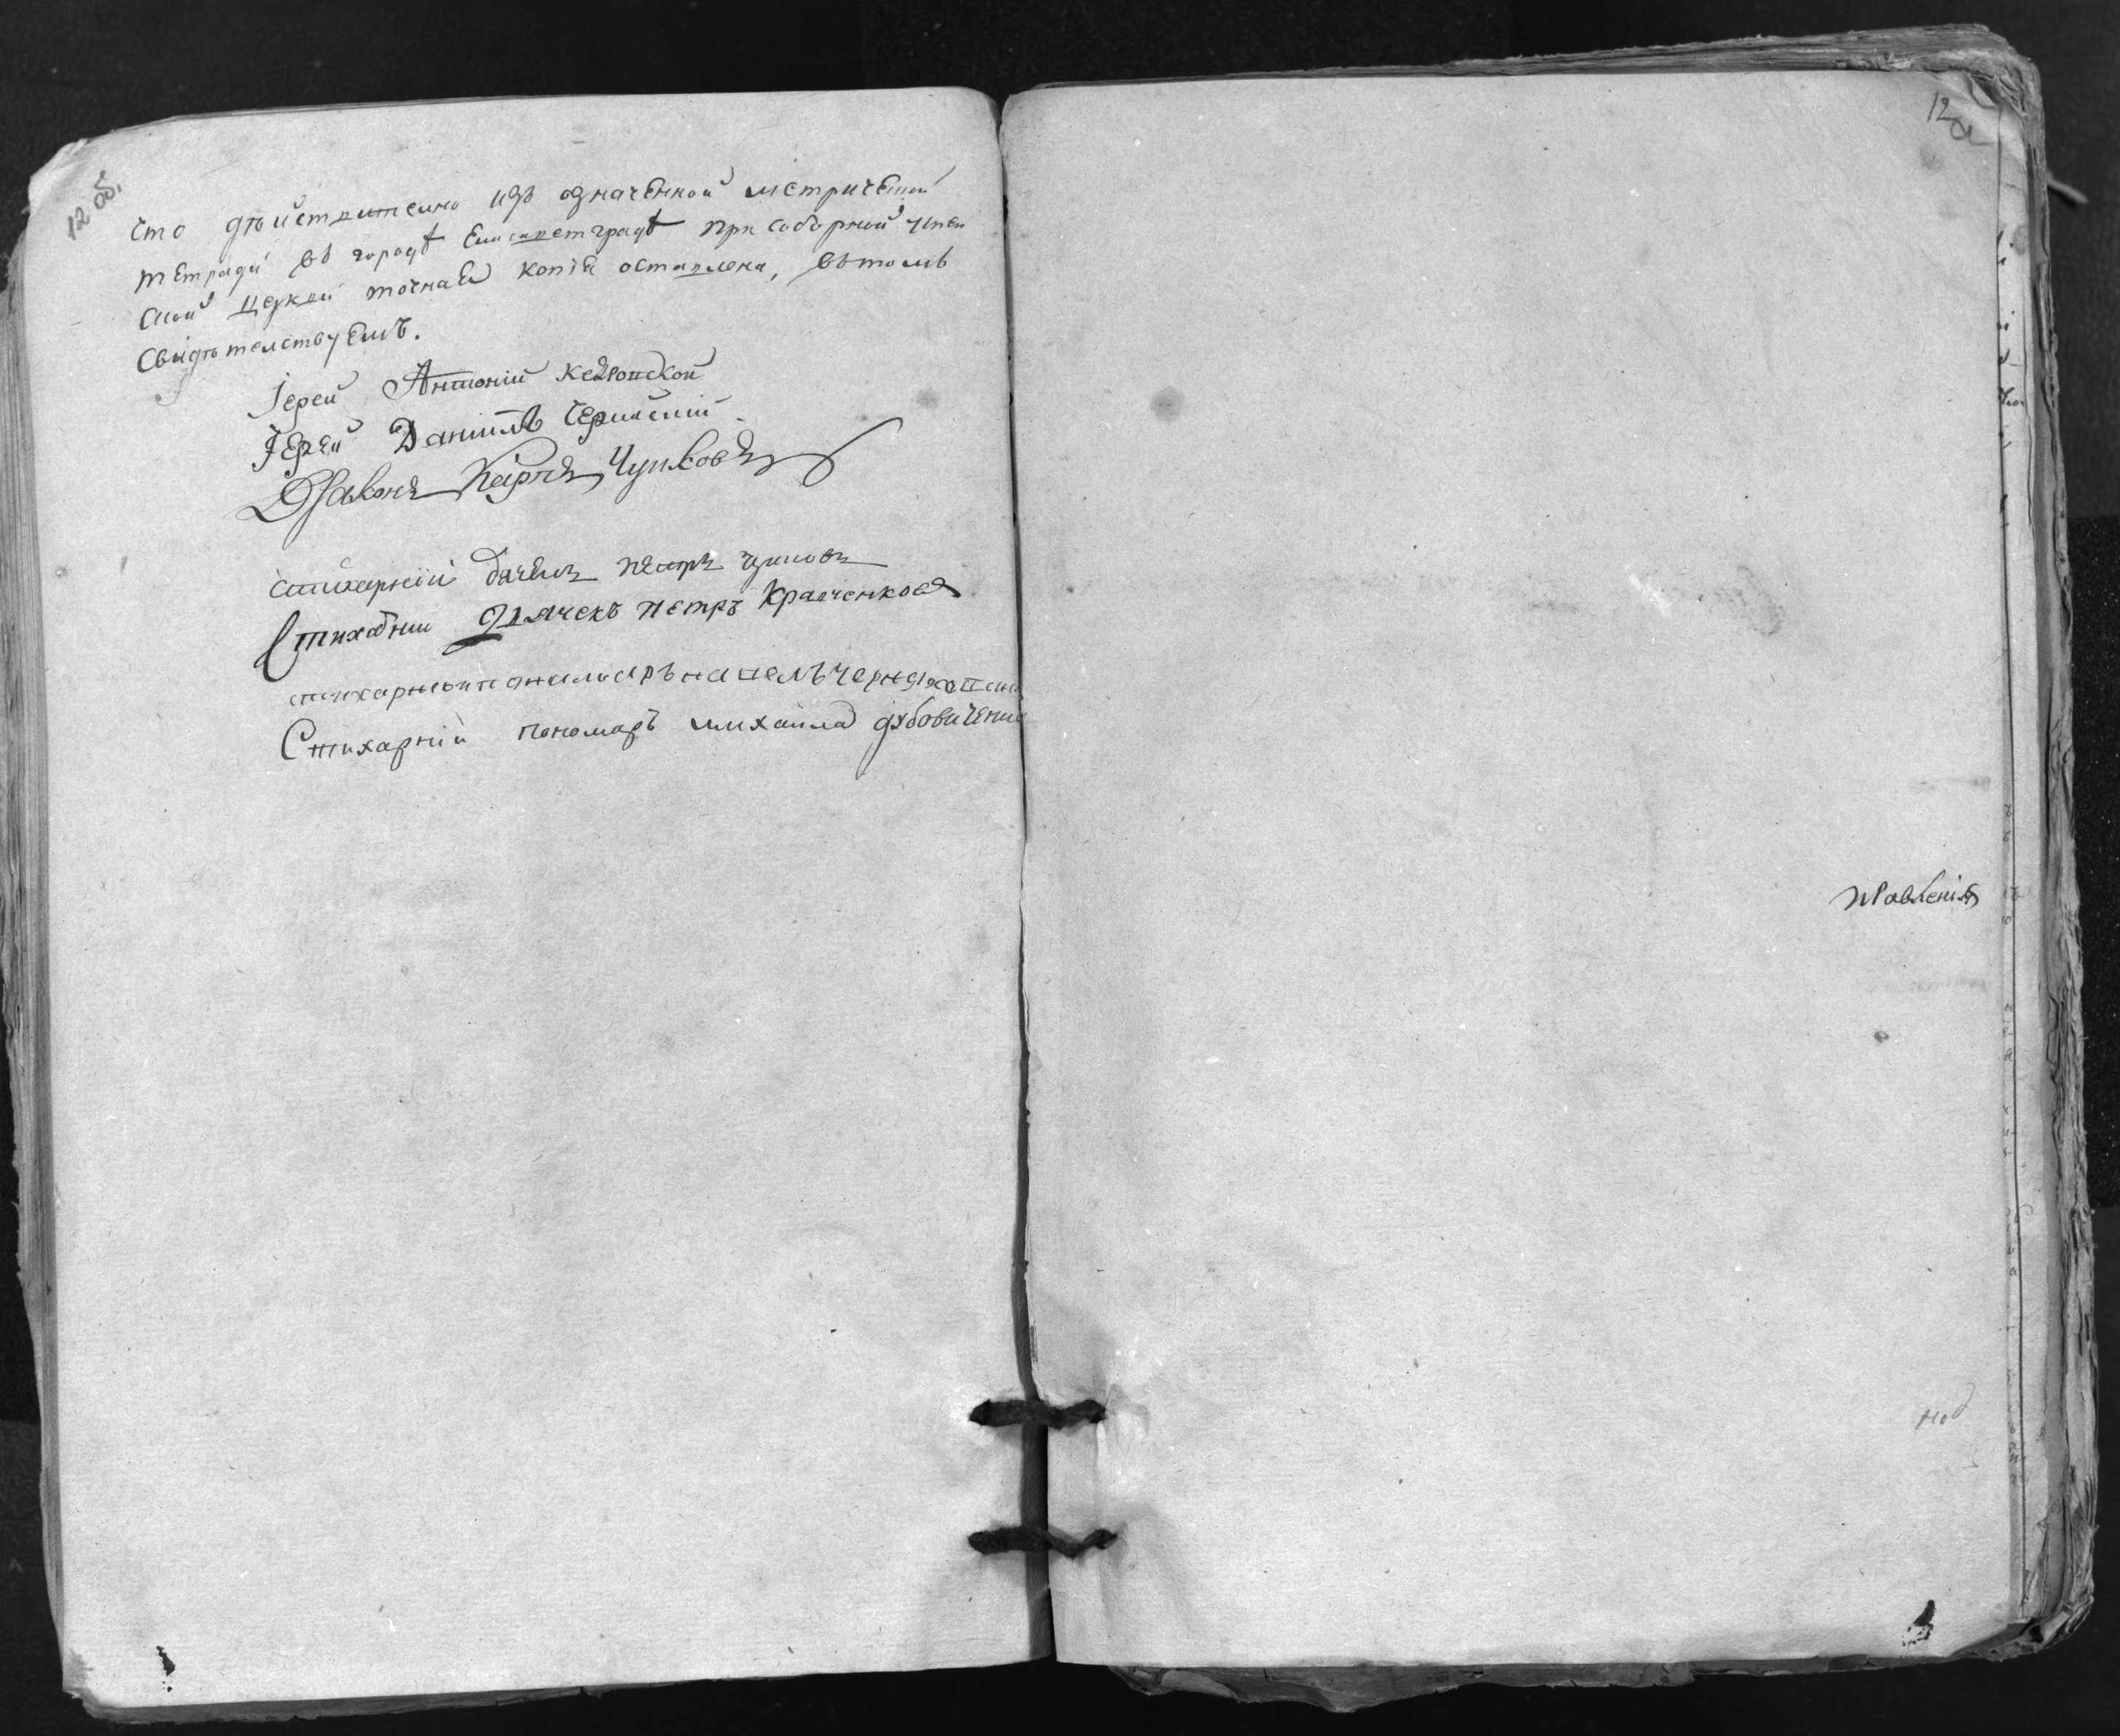 12 об.
что дѣйствително изъ означенной метрической
тетради въ городѣ Елисаветградѣ при соборной Успен
ской церкви точная копія оставлена, въ томъ
свидѣтелствуемъ.
Іерей Антоній
Іерей Даніилъ
Діаконъ Карпъ Чушковъ
стихарній дячекъ Петръ
Стихарнии Дьячекъ Петръ Кравченковъ
стихарнеи понамаръ
Стихарній пономаръ михаила дубовиченко
12
правленія